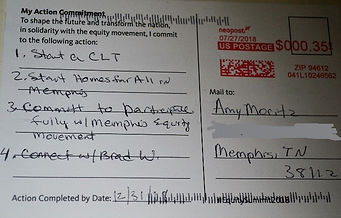 My Action Commitment
To shape the future and transform the nation,
in solidarity with the equity movement, I commit
to the following action:
1. Start a CLT
2. Start Homes for All in
Memphis
3. Committ to participate
fully w/ Memphis Equity
Movement
4. Connect w/ Brad W.
Action Completed by Date: 12/31/18
neopost
07/27/2018
US POSTAGE $000.35
ZIP 94612
041L10246562
Mail to:
Amy Moritz
Memphis, TN
38112